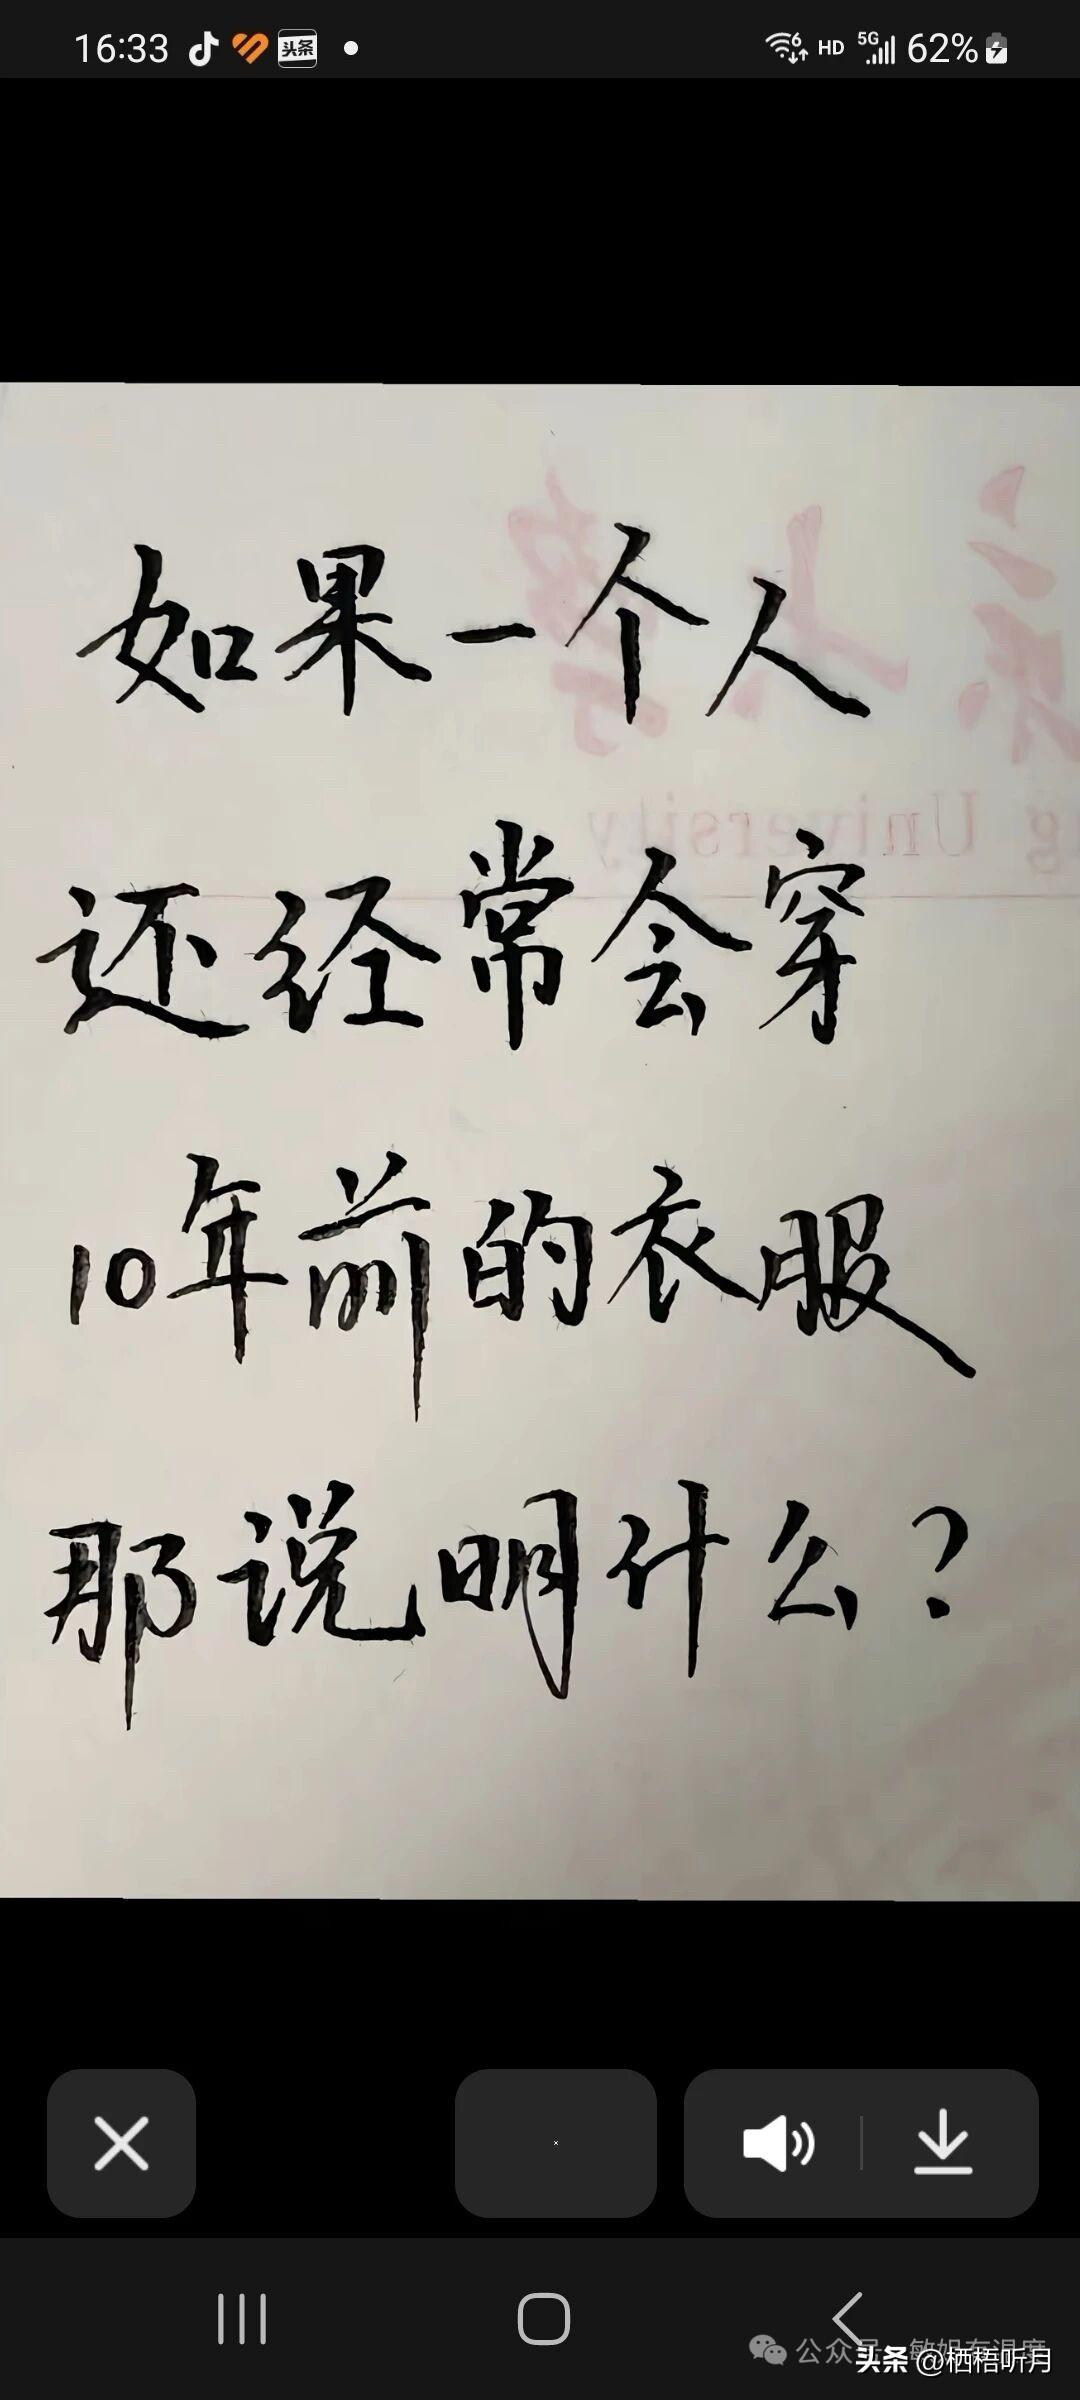 16:33 头条 HD 5G 62%
如果一个人
还经常会穿
10年前的衣服
那说明什么?
g University
公众号 敏姐有温度
头条 @栖梧听月